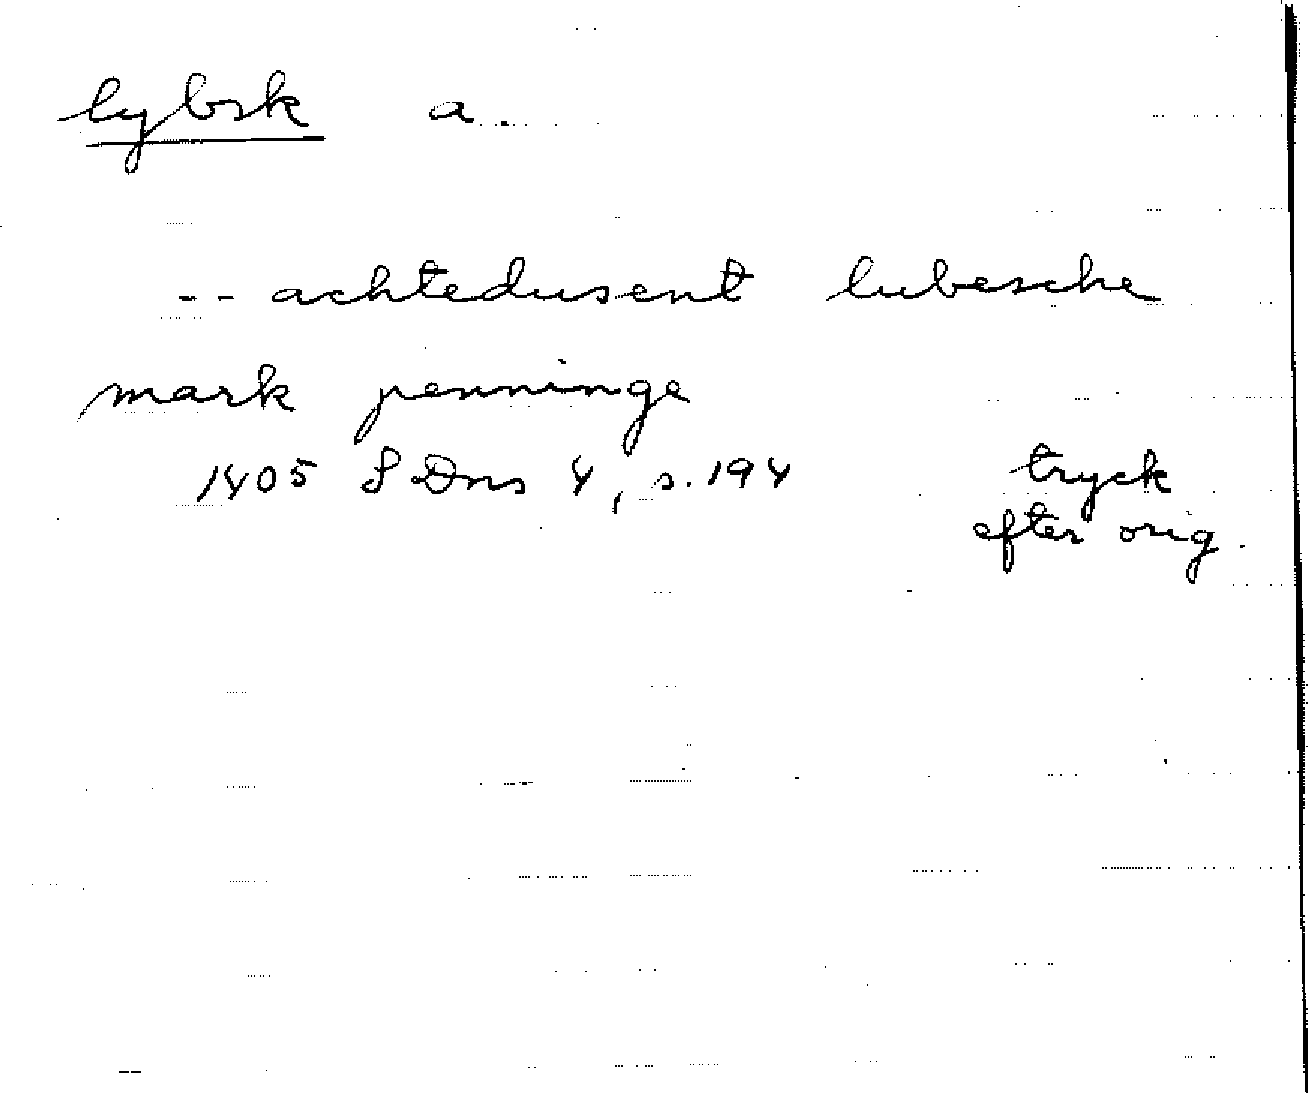 lybsk a.
-- achtedusent lubesche
mark penninge
1405 SDns 4, s. 194 tryck
efter orig.